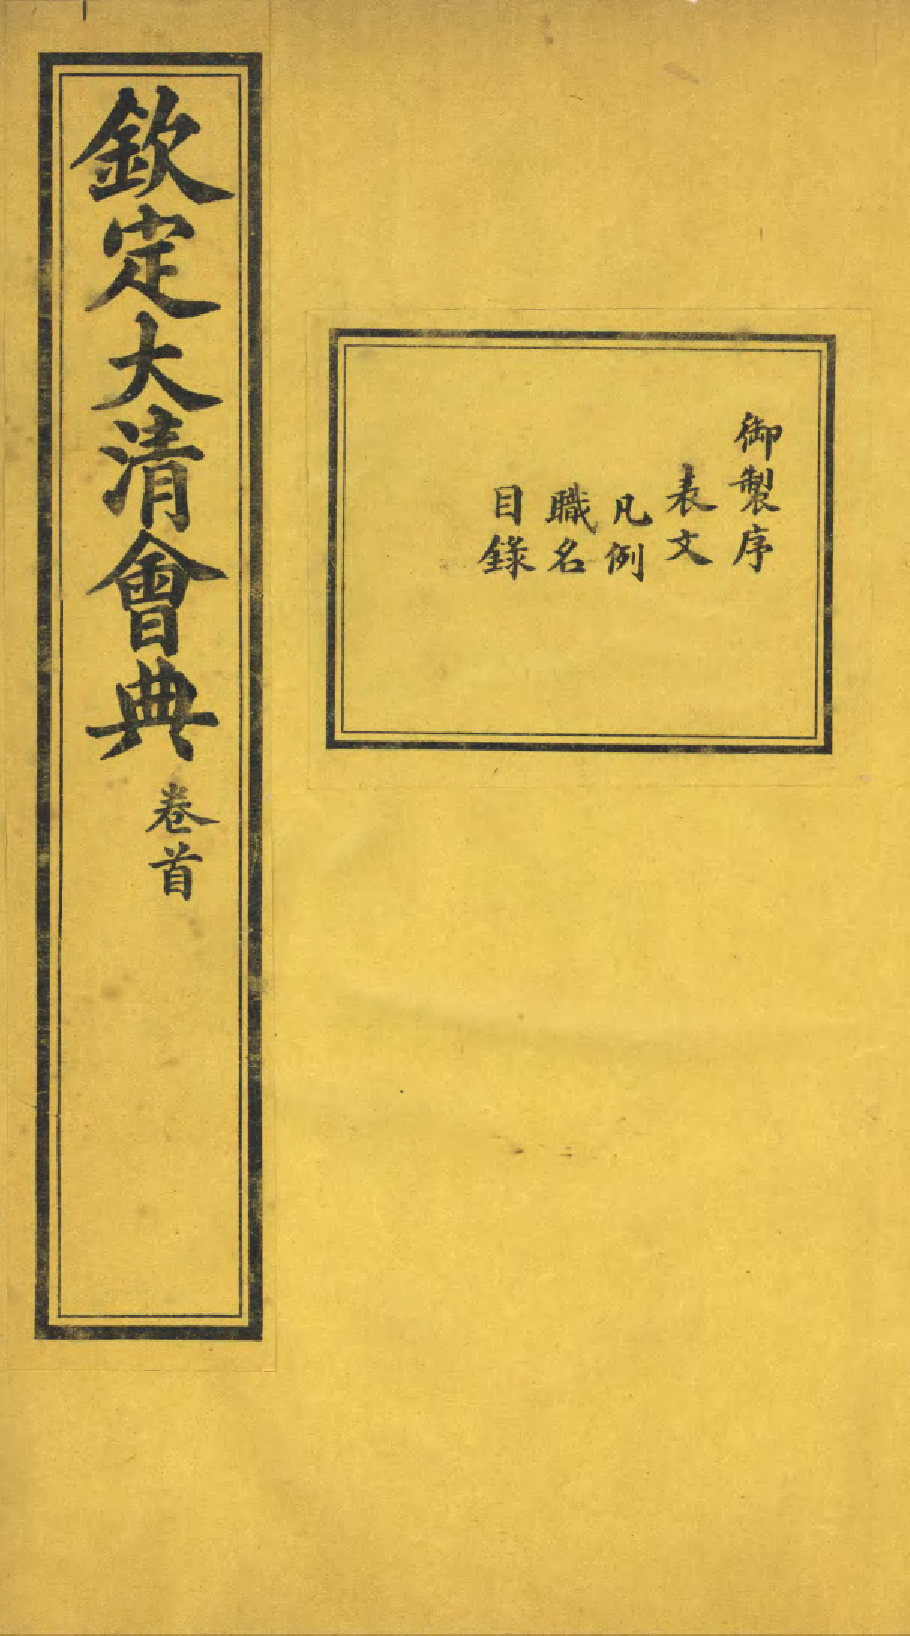 欽定大清會典卷首
御製序
表文
凡例
職名
目錄